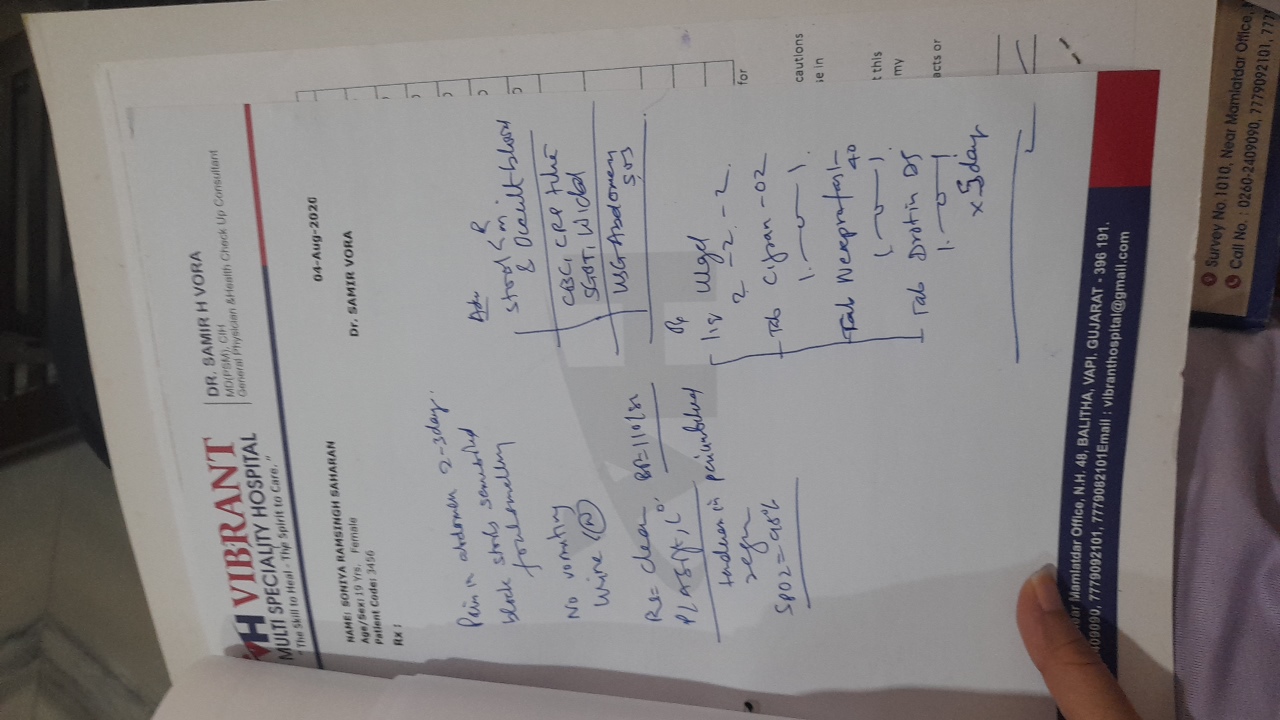 VH VIBRANT
MULTI SPECIALITY HOSPITAL
"The Skill to Heal - The Spirit to Care."
DR. SAMIR H VORA
MD(PSM), CIH
General Physician &Health Check Up Consultant
04-Aug-2020
NAME: SONIYA RAMSINGH SAHARAN
Age/Sex: 19 Yrs. Female
Patient Code: 3456
Dr. SAMIR VORA
Rx :
Pain in abdomen 2-3 day.
black stools
foul smelling
No vomiting
Urine (N)
RS= clear BP=110/
P/A Soft,
tenderness in periumbilical
region
SPO2=98%
Adv
Stool R
m.
& Occult blood
CBC, CRP
SGPT, Widal
USG Abdomen
SOS
Rx
liq
2 - 2 - 2
Tab Cifran - OZ
1 - 0 - 1
Tab
40
1 - 0 - 1
Tab Drotin DS
1 - 0 - 1
day
ear Mamlatdar Office, N.H. 48, BALITHA, VAPI. GUJARAT - 396 191.
409090, 7779092101, 7779082101Email : vibranthospital@gmail.com
for
cautions
se in
t this
my
acts or
Survey No.1010, Near Mamlatdar Office,
Call No. : 0260-2409090, 7779092101, 777